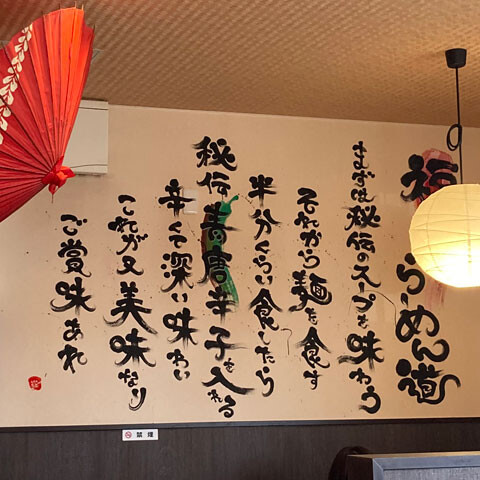 らーめん道
まずは秘伝のスープを味わう
それから麺を食す
半分くらい食したら
秘伝青唐辛子を入れる
辛くて深い味わい
これが又美味なり
ご賞味あれ
禁煙